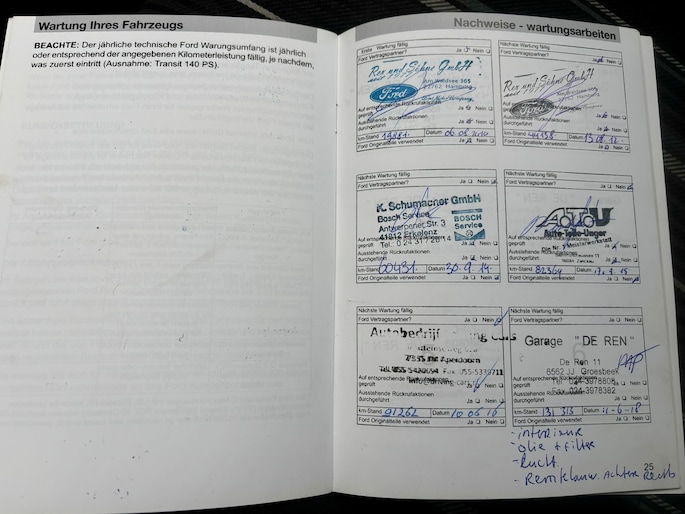 Wartung Ihres Fahrzeugs
BEACHTE: Der jährliche technische Ford Warungsumfang ist jährlich
oder entsprechend der angegebenen Kilometerleistung fällig, je nachdem,
was zuerst eintritt (Ausnahme: Transit 140 PS).
Nachweise - wartungsarbeiten
Erste Wartung fällig
Ford Vertragspartner? Ja Nein
Rex und Söhne GmbH
Ford
Auf entsprechende Rückrufaktionen
geprüft Ja Nein
Ausstehende Rückrufaktionen
durchgeführt Ja Nein
km-Stand 19881 Datum
Ford Originalteile verwendet Ja Nein
Nächste Wartung fällig
Ford Vertragspartner? Ja Nein
Rex und Söhne GmbH
Auf entsprechende Rückrufaktionen
geprüft Ja Nein
Ausstehende Rückrufaktionen
durchgeführt Ja Nein
km-Stand Datum 13.08.12
Ford Originalteile verwendet Ja Nein
Nächste Wartung fällig
Ford Vertragspartner? Ja Nein
K. Schumacher GmbH
Bosch Service
Antwerpener Str. 3
41812 Erkelenz
BOSCH
Service
geprüft Ja Nein
Ausstehende Rückrufaktionen
durchgeführt Ja Nein
km-Stand 60431 Datum 30.9.14
Ford Originalteile verwendet Ja Nein
Nächste Wartung fällig
Ford Vertragspartner? Ja Nein
Auto-Teile-Unger
geprüft Ja Nein
Ausstehende Rückrufaktionen
durchgeführt Ja Nein
km-Stand 82364 Datum
Ford Originalteile verwendet Ja Nein
Nächste Wartung fällig
Ford Vertragspartner? Ja Nein
Autobedrijf
Apeldoorn
Fax 055-5339711
Auf entsprechende
geprüft Ja Nein
Ausstehende Rückrufaktionen
durchgeführt Ja Nein
km-Stand 91262 Datum 10 06 16
Ford Originalteile verwendet Ja Nein
Nächste Wartung fällig
Ford Vertragspartner? Ja Nein
Garage "DE REN"
De Ren 11
8562 JJ Groesbeek
Tel 024-3978808
Fax 024-3978382
geprüft
Ausstehende Rückrufaktionen
durchgeführt Ja Nein
km-Stand 131 313 Datum 11-6-18
Ford Originalteile verwendet Ja Nein
- olie + filter
- lucht
- Remklauw Achter Rechts
25